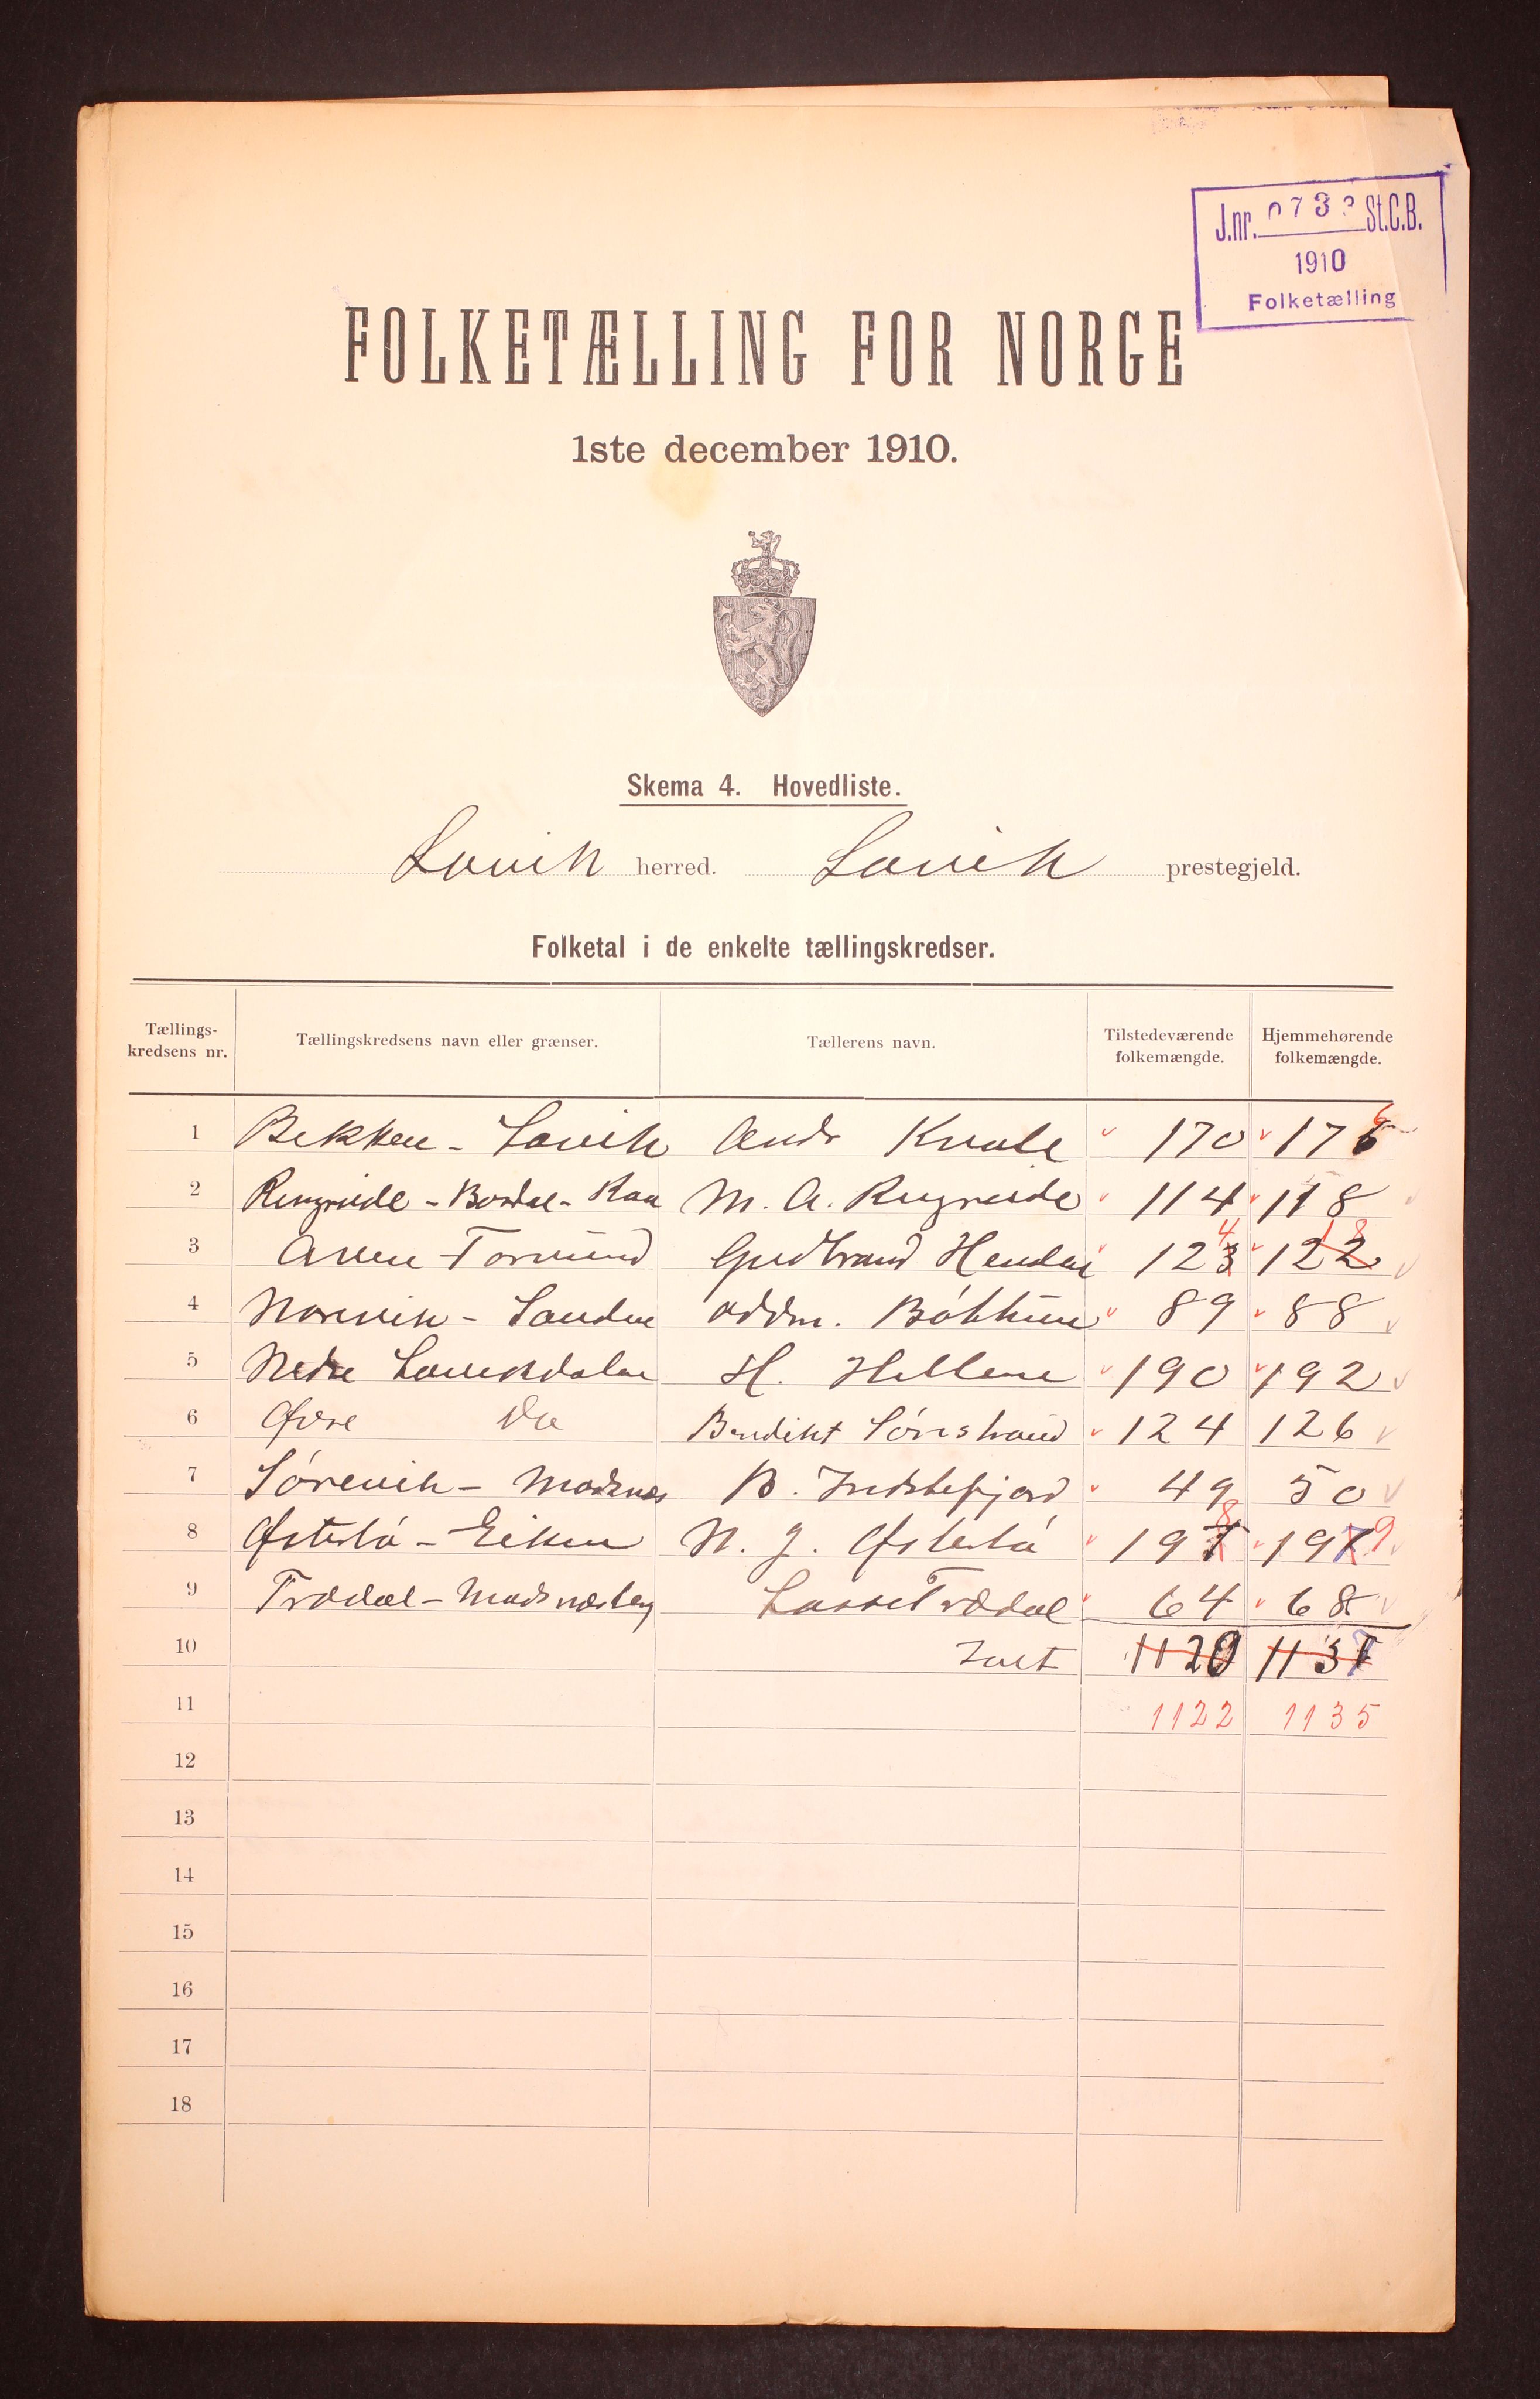 J.nr. 073 St.C.B.
1910
Folketælling
FOLKETÆLLING FOR NORGE
1ste december 1910.
Skema 4. Hovedliste.
Lavik herred. Lavik prestegjeld.
Folketal i de enkelte tællingskredser.
Tællings-kredsens nr. Tællingskredsens navn eller grænser. Tællerens navn. Tilstedeværende folkemængde. Hjemmehørende folkemængde.
1 Bekken - Lavik Andr Kvale 170 176
2 Ringreide - Bordal - Raa M. A. Ringreide 114 118
3 Alven - Tormund Gudbrand Hendén 124 118
4 Norevik - Sanden Oddm. Bøthun 89 88
5 Nedre Lavikdalen H. Hellene 190 192
6 Øvre Do Bendikt Sørestrand 124 126
7 Sørevik - Madsnæs B. Indstefjord 49 50
8 Østerbø - Eiken N. J. Østerbø 198 199
9 Trædal - Lasse Trædal 64 68
10 Ialt 1120 1137
11 1122 1135
12
13
14
15
16
17
18